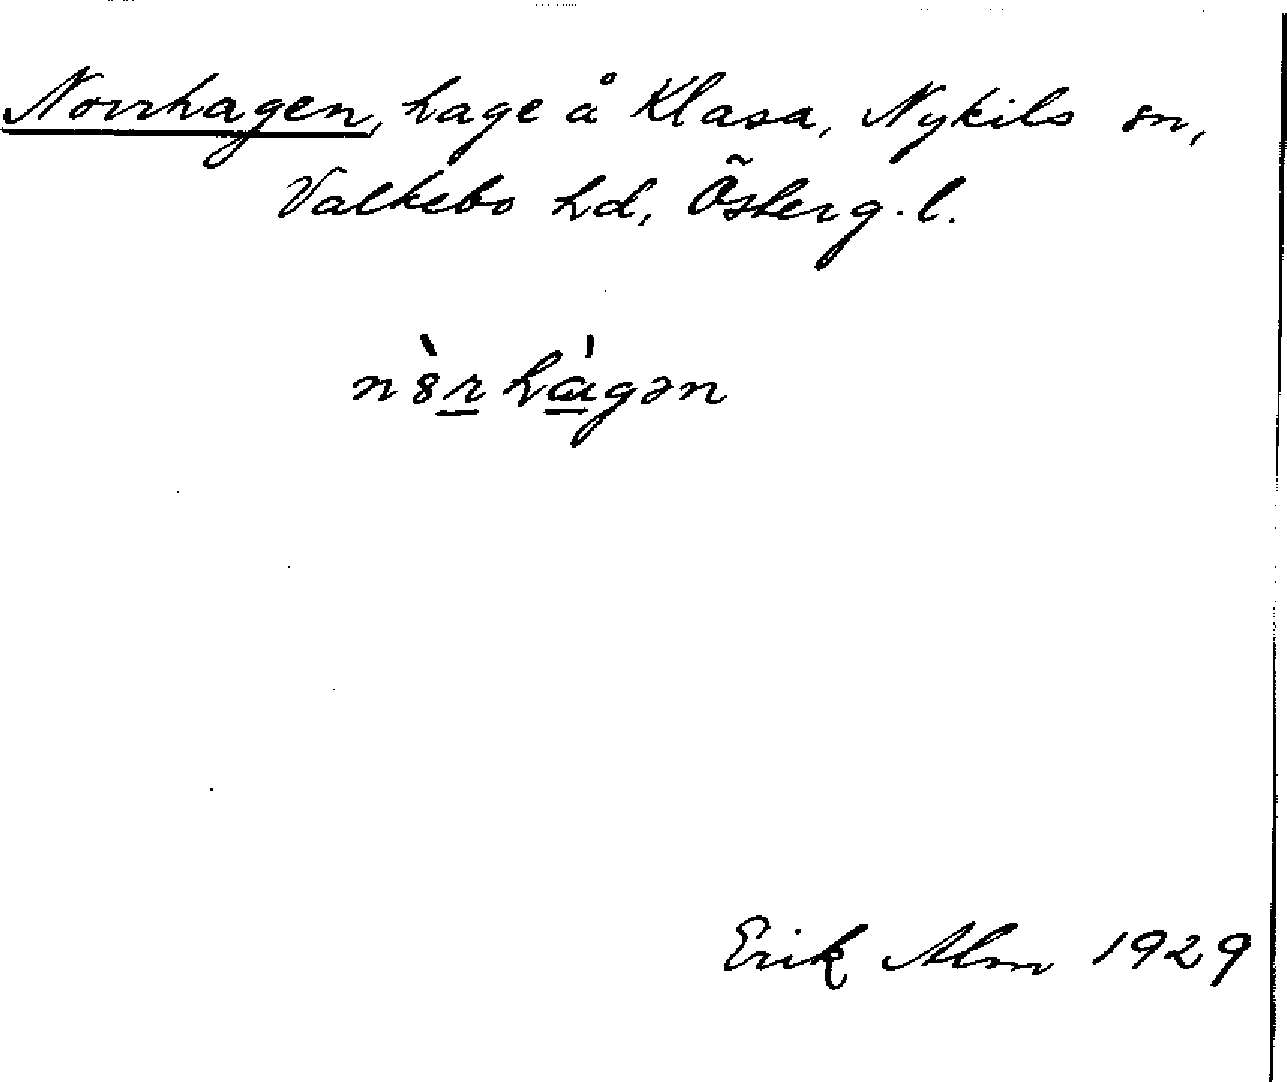 Norrhagen, hage å Klasa, Nykils sn,
Valkebo hd, Österg.l.
n8̀rhɑ̀gən
Erik Alm 1929